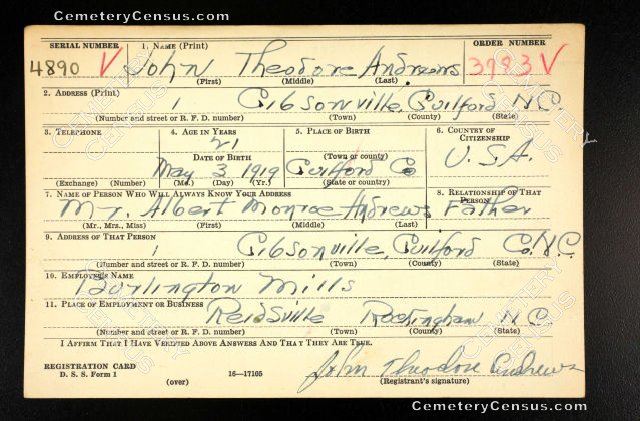 CemeteryCensus.com
SERIAL NUMBER 1. NAME (Print) ORDER NUMBER
4890 V John Theodore Andrews 3783 V
(First) (Middle) (Last)
2. ADDRESS (Print)
1 Gibsonville, Guilford N.C.
(Number and street or R. F. D. number) (Town) (County) (State)
3. TELEPHONE 4. AGE IN YEARS 5. PLACE OF BIRTH 6. COUNTRY OF CITIZENSHIP
21
DATE OF BIRTH (Town or county) U.S.A.
May 3 1919 Guilford Co
(Exchange) (Number) (Mo.) (Day) (Yr.) (State or country)
7. NAME OF PERSON WHO WILL ALWAYS KNOW YOUR ADDRESS 8. RELATIONSHIP OF THAT PERSON
Mr. Albert Monroe Andrews Father
(Mr., Mrs., Miss) (First) (Middle) (Last)
9. ADDRESS OF THAT PERSON
1 Gibsonville, Guilford Co. N.C.
(Number and street or R. F. D. number) (Town) (County) (State)
10. EMPLOYER'S NAME
Burlington Mills
11. PLACE OF EMPLOYMENT OR BUSINESS
Reidsville Rockingham N C
(Number and street or R. F. D. number) (Town) (County) (State)
I AFFIRM THAT I HAVE VERIFIED ABOVE ANSWERS AND THAT THEY ARE TRUE.
REGISTRATION CARD
D. S. S. Form 1 (over) 16—17105 John Theodore Andrews
(Registrant's signature)
CemeteryCensus.com